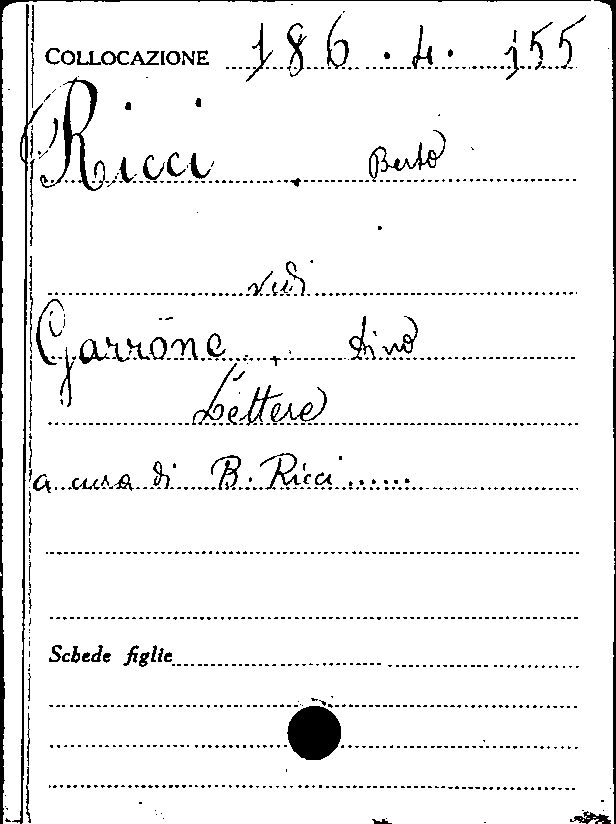 COLLOCAZIONE 186.4.155
Ricci, Berto
vedi
Garrone, Dino
Lettere
a cura di B. Ricci......
Schede figlie